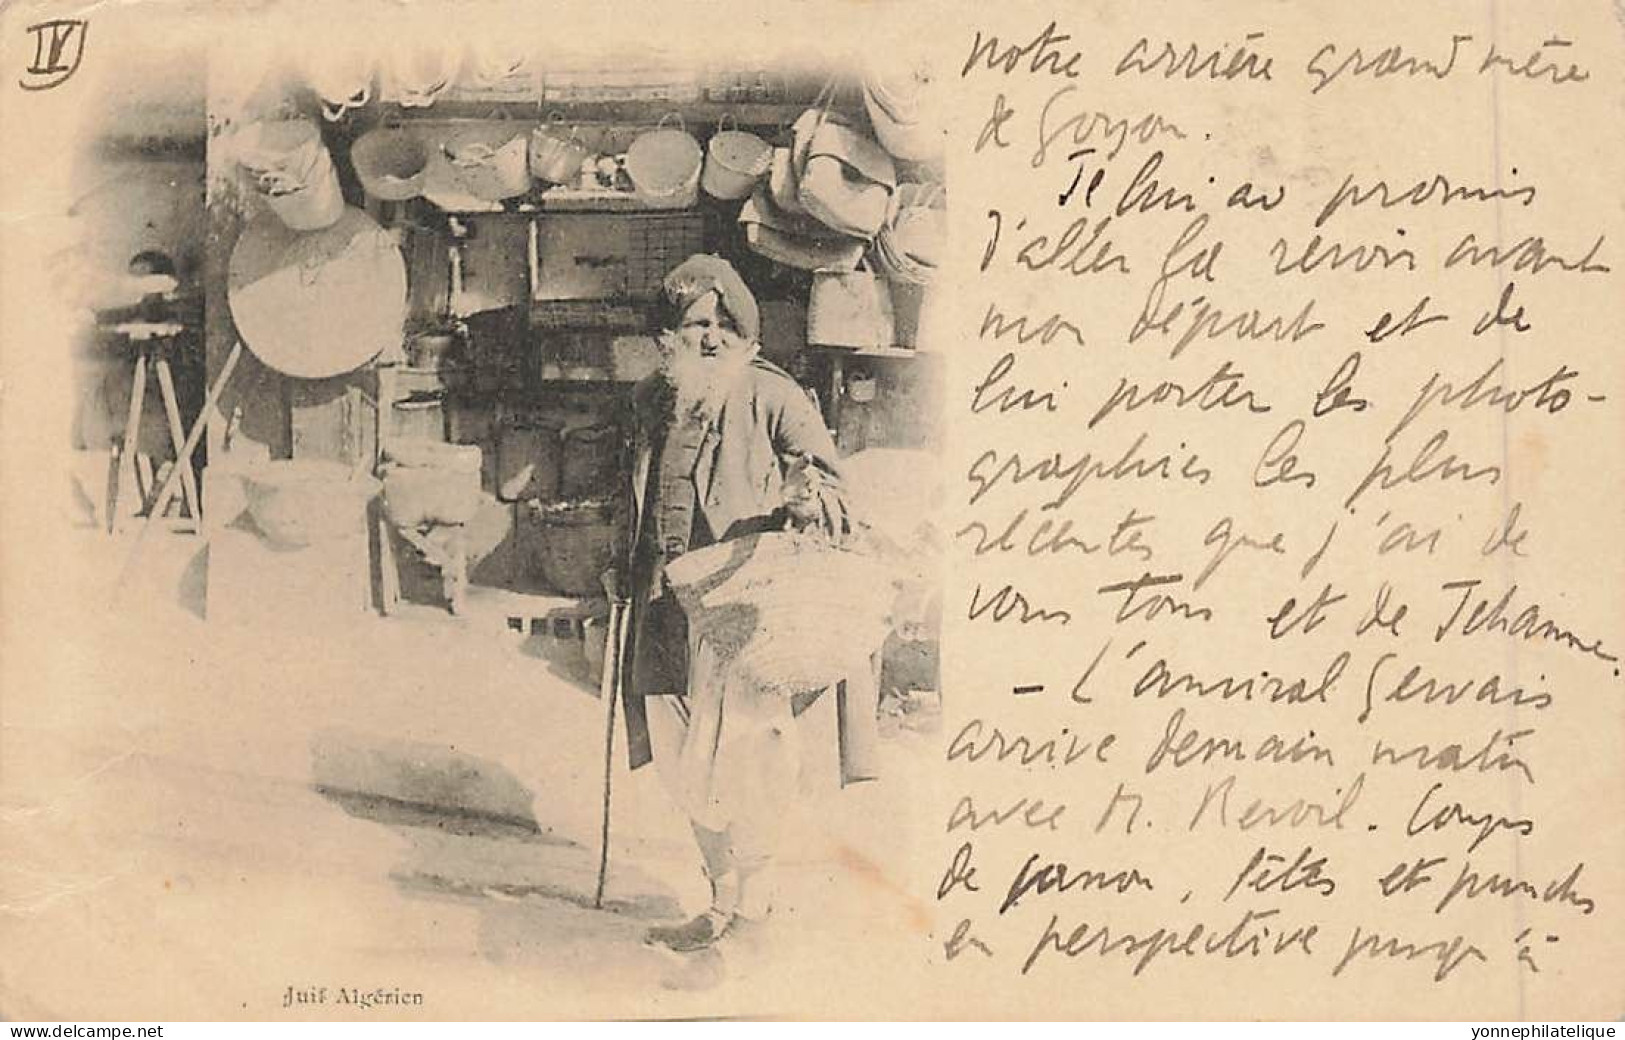 IV
notre arrière grand mère
de Goyon.
Je lui ai promis
d'aller la revoir avant
mon départ et de
lui porter les photo-
graphies les plus
récentes que j'ai de
vous tous et de Jehanne.
- L'amiral Gervais
arrive demain matin
avec M. Revoil. Coups
de canon, fêtes et punchs
en perspective jusqu'à
Juif Algérien
www.delcampe.net
yonnephilatelique